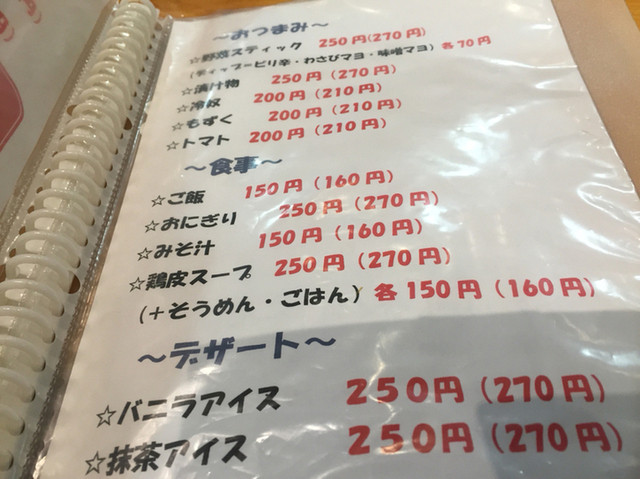 ～おつまみ～
☆野菜スティック 250円(270円)
(ディップーピリ辛・わさびマヨ・味噌マヨ)各70円
☆漬け物 250円(270円)
☆冷奴 200円(210円)
☆もずく 200円(210円)
☆トマト 200円(210円)
～食事～
☆ご飯 150円(160円)
☆おにぎり 250円(270円)
☆みそ汁 150円(160円)
☆鶏皮スープ 250円(270円)
(+そうめん・ごはん)各150円(160円)
～デザート～
☆バニラアイス 250円(270円)
☆抹茶アイス 250円(270円)